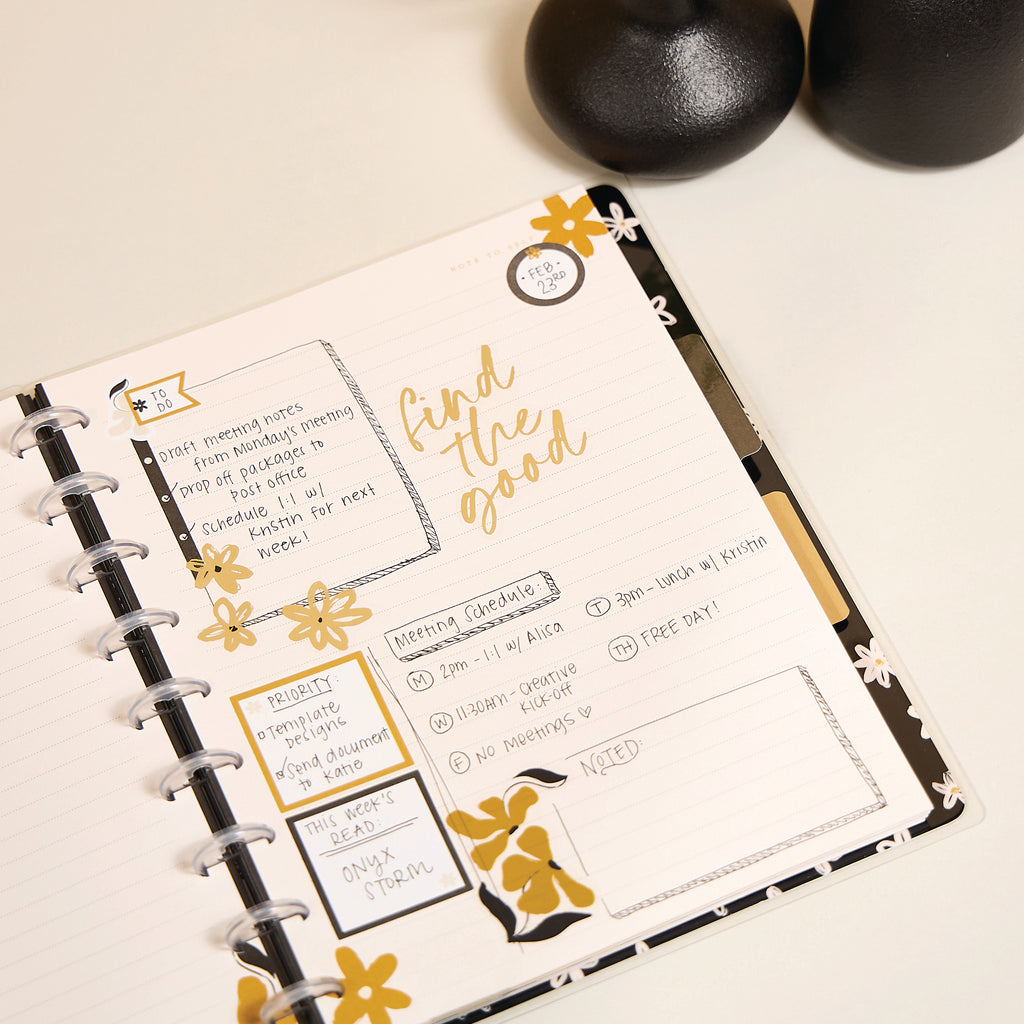 NOTE TO SELF
FEB
23RD
find
the
good
TO
DO
Draft meeting notes
from Monday's meeting
Drop off packages to
post office
Schedule 1:1 w/
Kristin for next
week!
Meeting Schedule:
M 2pm - 1:1 w/ Alisa
T 3pm - Lunch w/ Kristin
W 11:30AM - Creative
Kick-off
TH FREE DAY!
F No Meetings ♡
PRIORITY:
Template
Designs
Send document
to Katie
THIS WEEK'S
READ:
ONYX
STORM
NOTED: